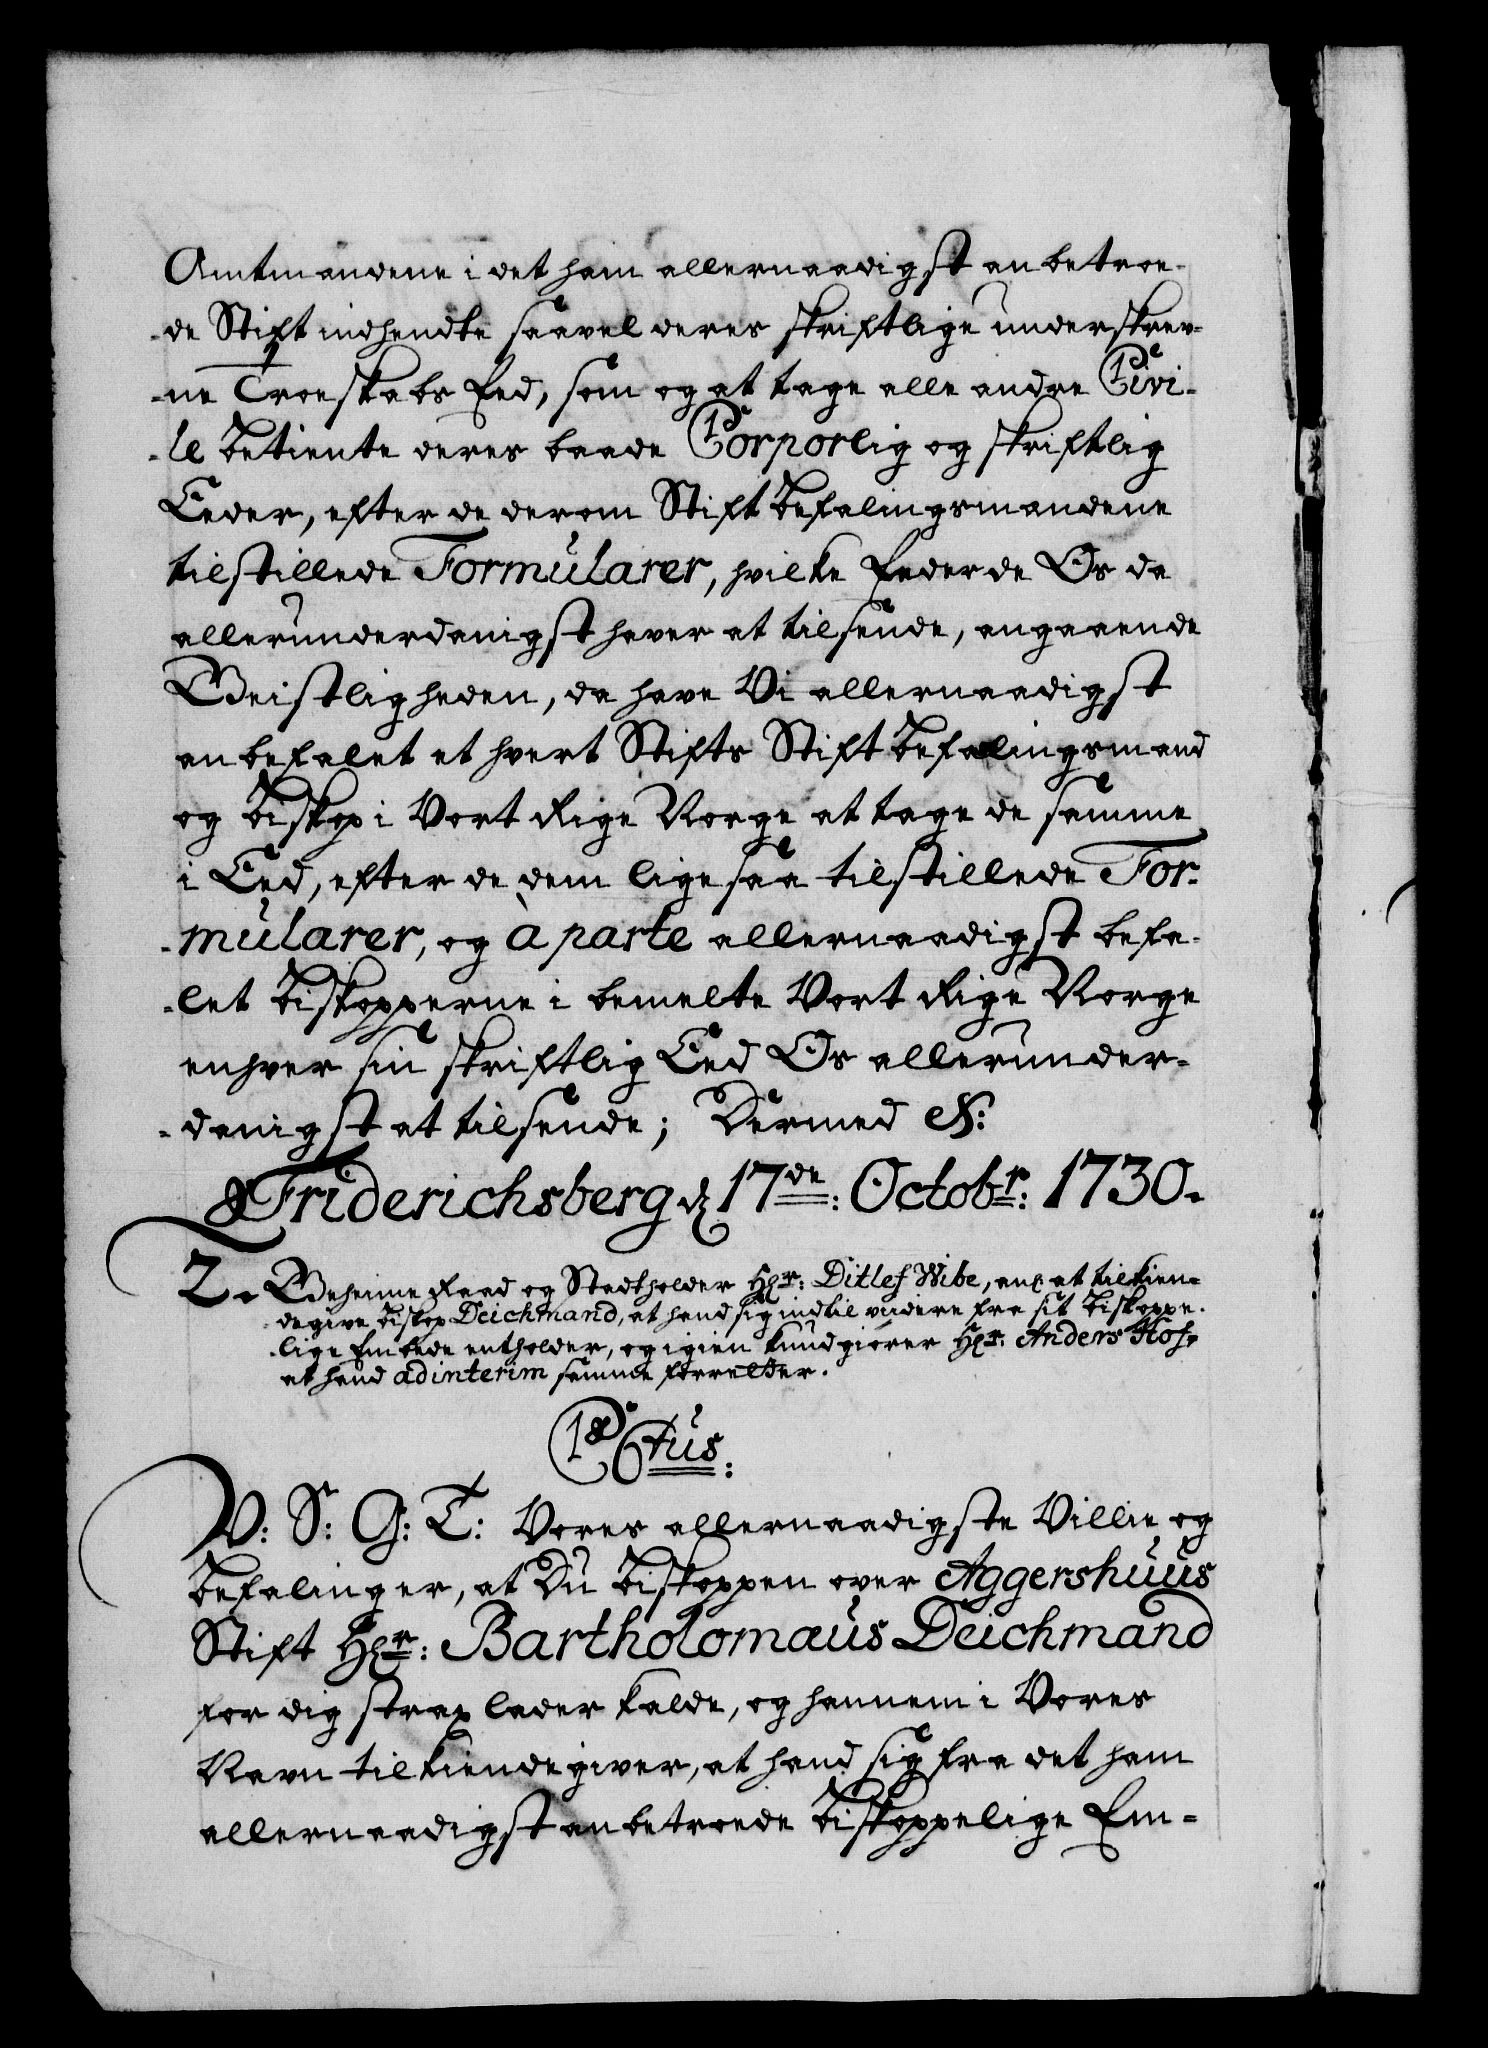 Amtmandene i det ham allernaadigst anbetroe-
-de Stift indhendte saavel deres skriftlige underskrev-
-ne Troeskabs Eed, som og at tage alle andre Civi-
-le betiente deres baade Corporlig og skriftlig
Eeder, efter de derom Stift befalingsmandene
tilstillede Formularer, hvilke Eeder de Os da
allerunderdanigst haver at tilsende, angaaende
Geistligheden, da have Vi allernaadigst
anbefalet et hvert Stifts Stift befalingsmand
og biskop i Vort Rige Norge at tage de samme
i Eed, efter de dem lige saa tilstillede For-
-mularer, og à parte allernaadigst befa-
-let biskopperne i bemelte Vort Rige Norge
enhver sin skriftlig Eed Os allerunder-
-danigst at tilsende; Dermed &:
Friderichsberg d 17de: Octobr: 1730.
2. Geheime Raad og Stadtholder Hr: Ditlef Wibe, anl at tilkien-
degive biskop Deichmand, at hand sig indtil viidere fra sit biskoppe-
-lige Embede entholder, og igien kundgiører Hr: Anders Hof,
at hand ad interim samme forretter.
C6tus:
V: S: G: T: Vores allernaadigste Villie og
befalinger, at Du biskoppen over Aggershuus
Stift Hr: Bartholomæus Deichmand
for dig strax lader kalde, og hannem i Vores
Navn tilkiendegiver, at hand sig fra det ham
allernaadigst anbetroede biskoppelige Em-